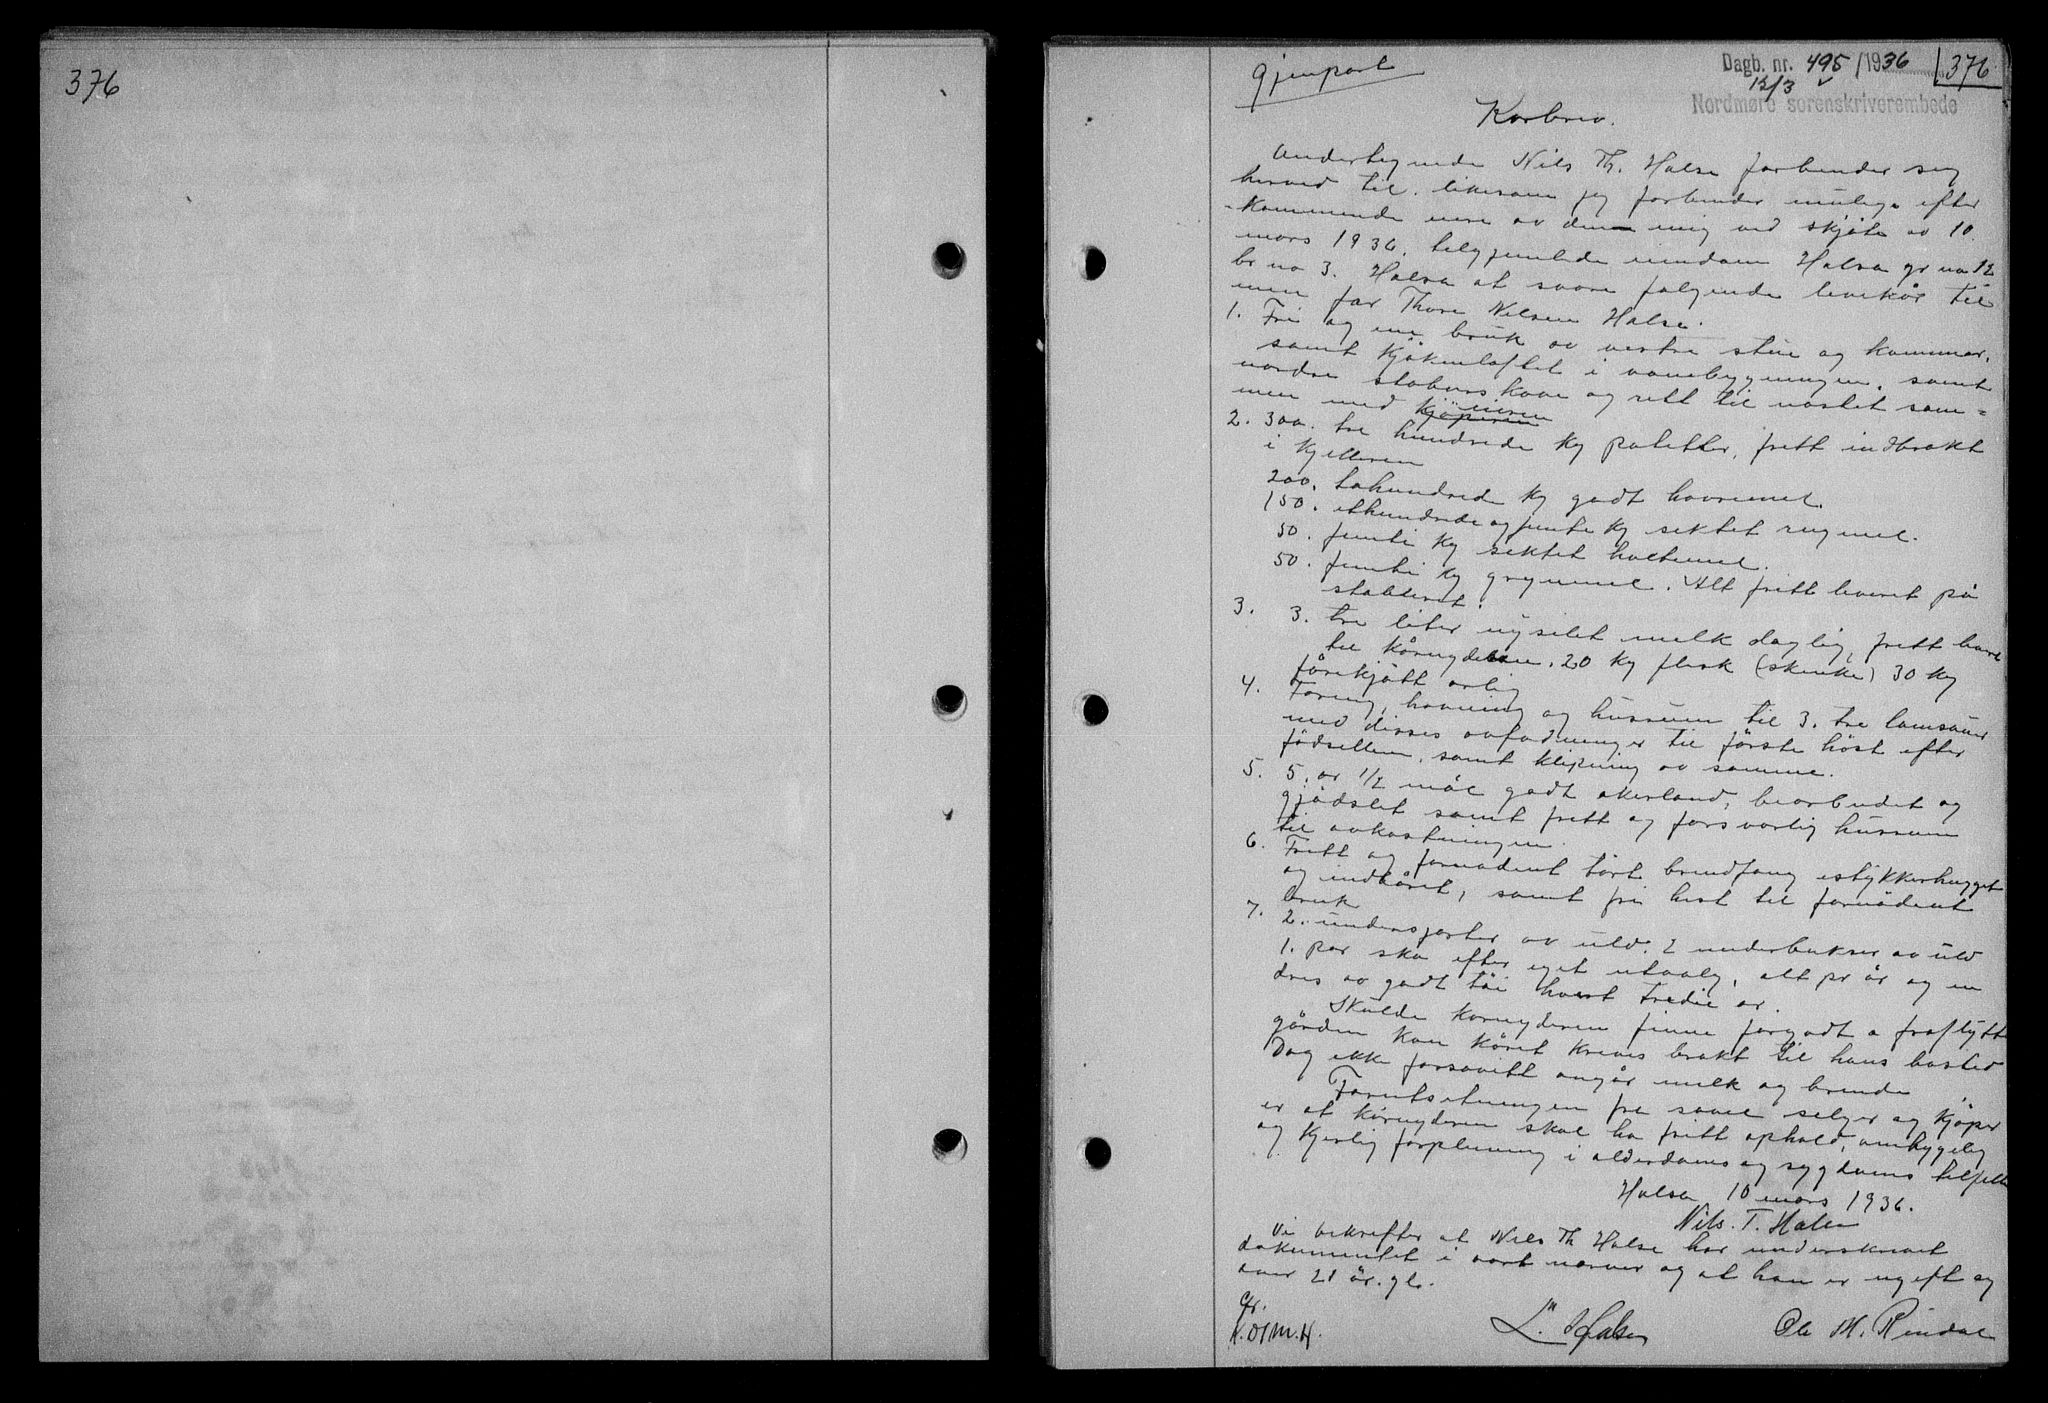 376
Gjenpart
Dagb. nr. 495/1936
376
12/3
Nordmøre sorenskriverembede
Kårbrev.
Undertegnede Nils Th. Halse forbinder seg
herved til, likesom jeg forbinder mulige efter
-kommende eiere av den mig ved skjöte av 10
mars 1936, eiendom Halsa gr no 12
br no 3. Halsa at svare fölgende levekår til
min far Thore Nilsen Halse.
1. Fri og ene bruk av vestre stue og kammer,
samt kjökenloftet i vånebygningen, samt
nordre staburs kove og rett til nöstet sam=
men med kjöperen eieren
2. 300. tre hundrede kg poteter, fritt indbrakt
i kjelleren
200. tohundrede kg godt havremel.
150. ethundrede og femti kg siktet rugmel.
50. femti kg siktet hvetemel.
50. femti kg grynmel. Alt fritt levert på
stabburet.
3. 3. tre liter nysilet melk daglig, fritt
til kårnyderen. 20 kg flesk (skinke) 30 kg
fårekjött årlig
4. Foring, havning og husrum til 3. tre lamsauer
med disses avfödninger til förste höst efter
födsellen, samt klipning av samme.
5. 5. ar 1/2 mål godt akerland, bearbeidet og
gjödslet samt fritt og forsvarlig husrum
til avkastningen.
6. Fritt og fornödent tört brendfang istykkerhugget
og indbåret, samt fri hest til fornödent
bruk
7. 2. underskjorter av uld. 2 underbukser av uld
1. par sko efter eget utvalg, alt pr år og en
dres av godt töi hvert tredie år.
Skulde kårnyderen finne forgodt å fraflytte
gården kan kåret kreves brakt til hans bosted
Dog ikke forsåvitt angår melk og brende
Forutsetningen fra såvel selger og kjöper
er at kårnyderen skal ha fritt ophold, omhyggelig
og kjerlig forpleining i alderdoms og sygdoms tilfelle
Halsa 10 mars 1936.
Nils. T. Halse
Vi bekrefter at Nils Th Halse har underskrevet
dokumentet i vort nærver og at han er ugift og
over 21 år. gl.
L. Halse
Ole M. Rindal